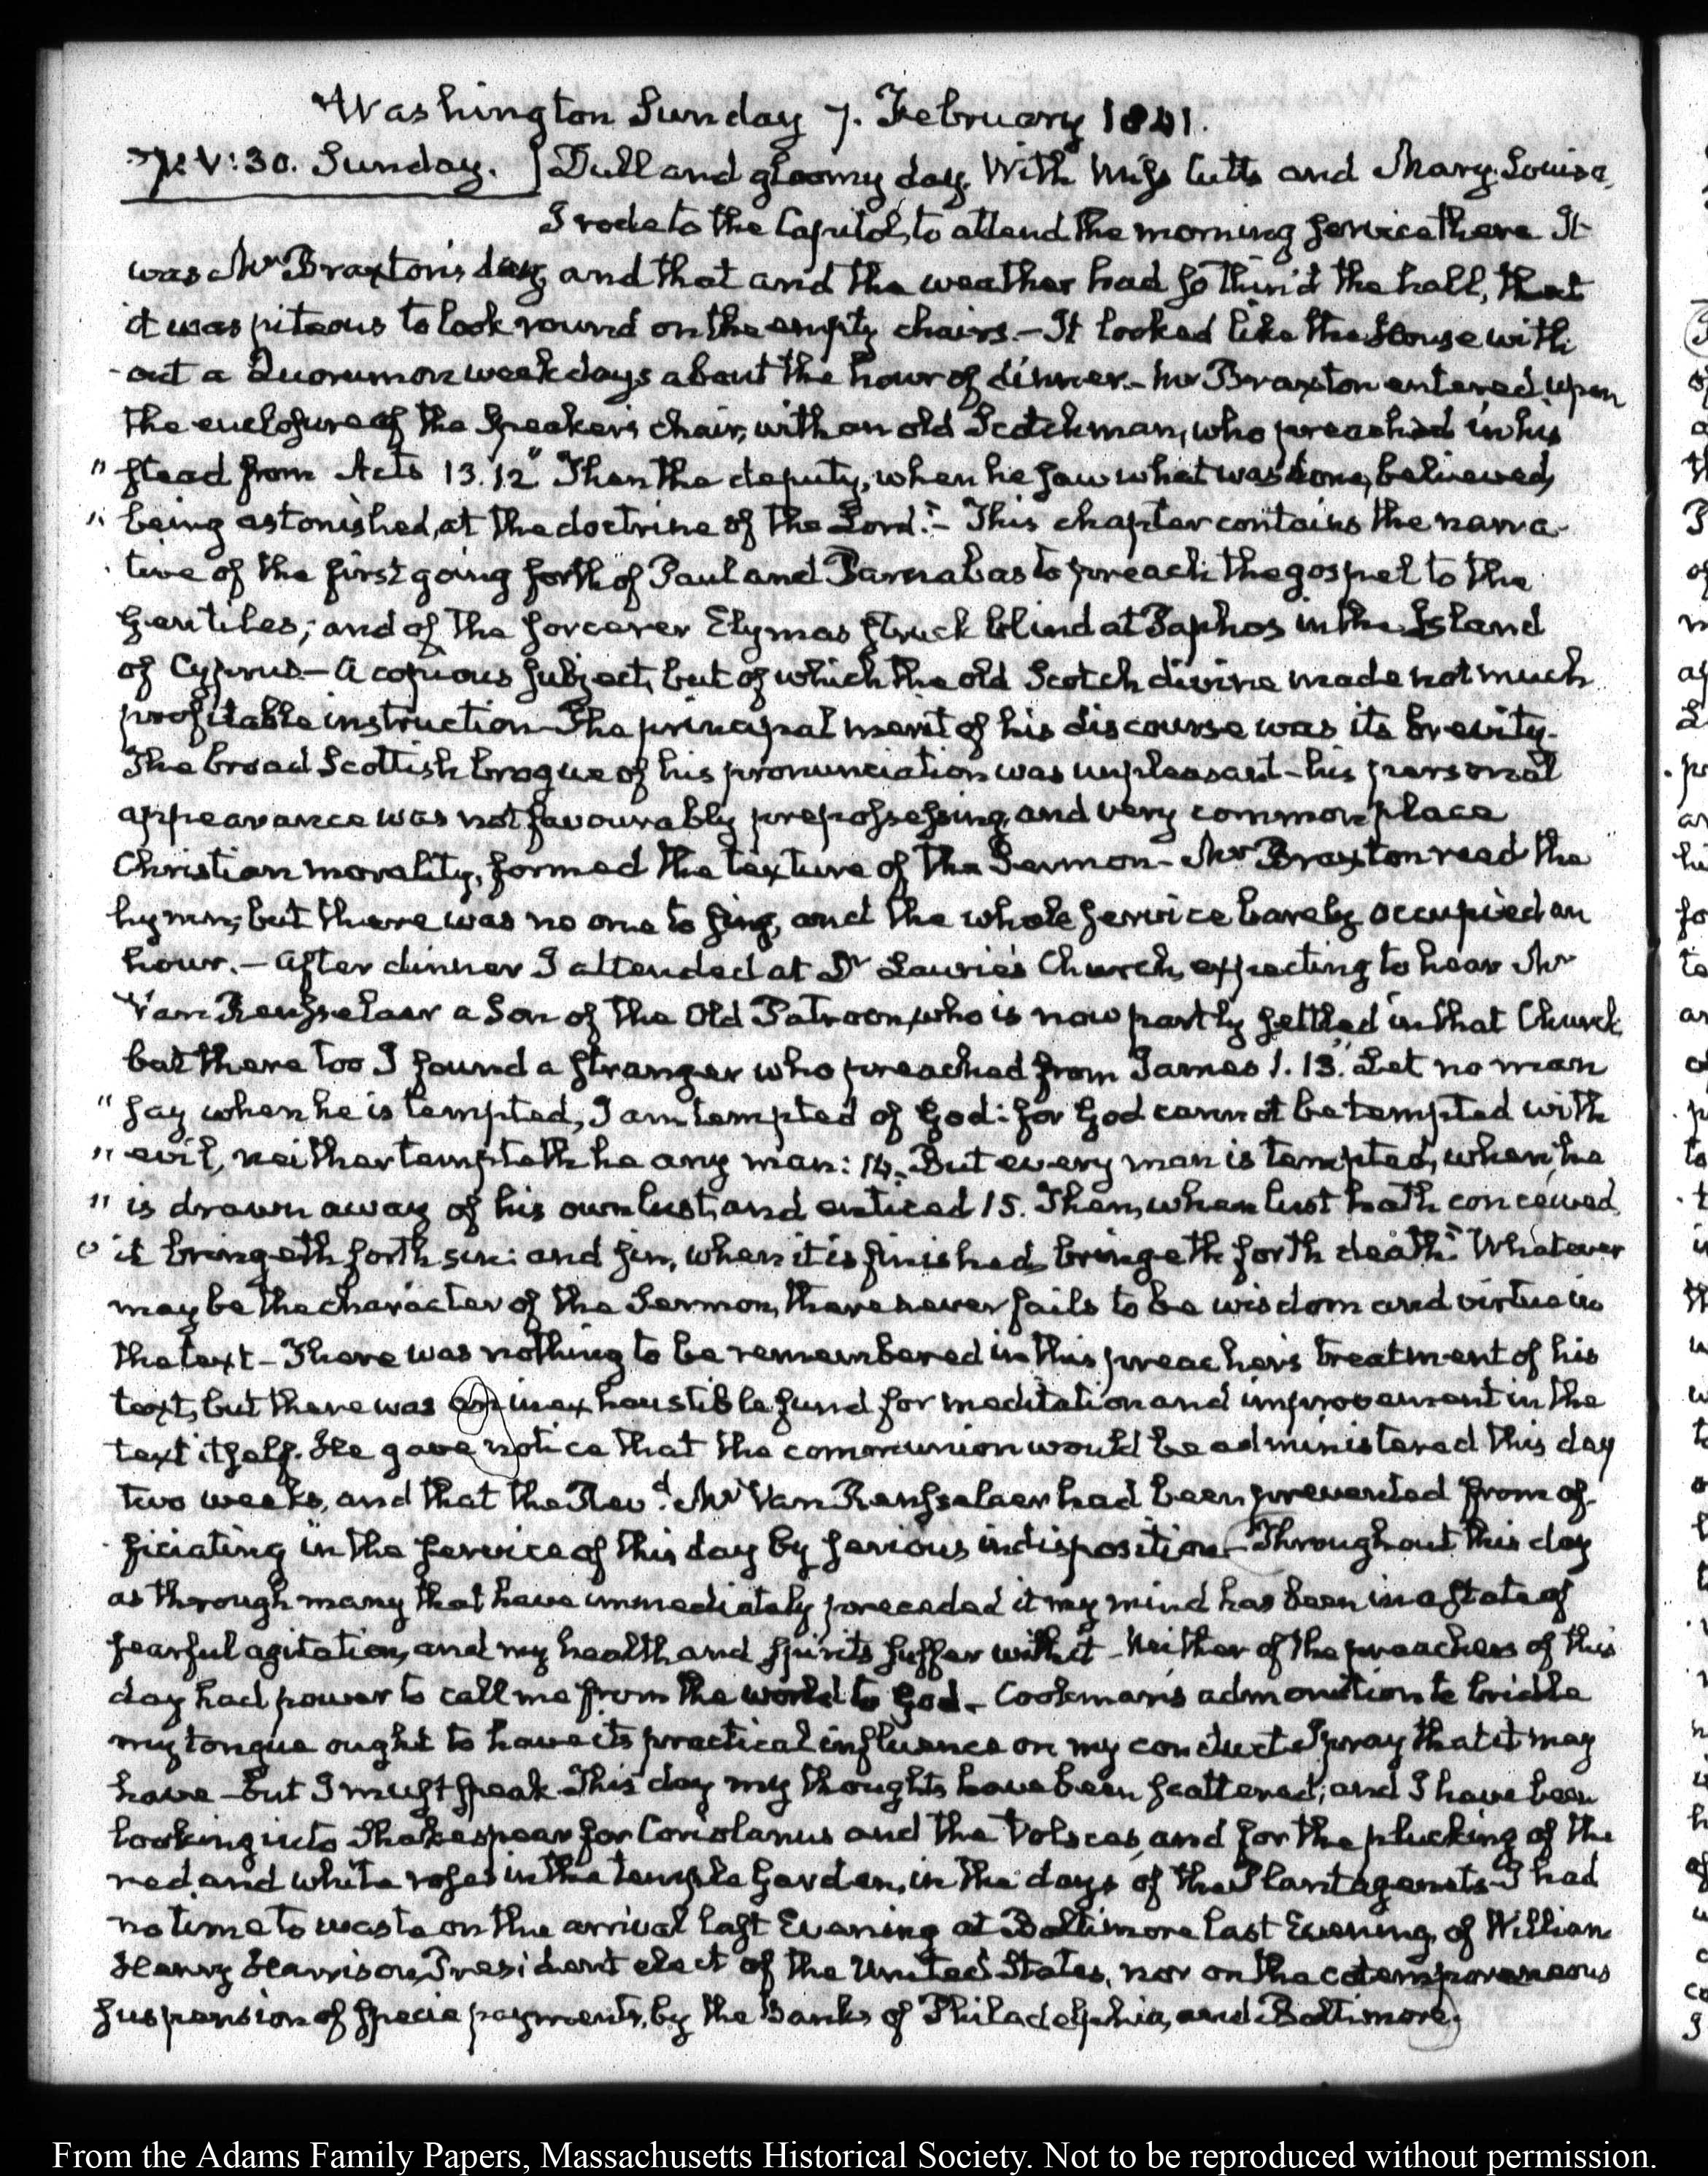 Washington Sunday 7. February 1841.
7. V:30. Sunday. Dull and gloomy day. With Miss Cutts and Mary-Louisa,
I rode to the Capitol, to attend the morning service there. It
was Mr Braxton's day, and that and the weather had so thin'd the hall, that
it was piteous to look round on the empty chairs.— It looked like the House with
-out a Quorum on week days about the hour of dinner.— Mr Braxton entered upon
the enclosure of the Speaker's chair, with an old Scotchman, who preached in his
" stead from Acts 13.12" Then the deputy, when he saw what was done, believed,
" being astonished, at the doctrine of the Lord."— This chapter contains the narra-
tive of the first going forth of Paul and Barnabas to preach the gospel to the
Gentiles; and of the sorcerer Elymas struck blind at Paphos in the Island
of Cyprus.— A copious subject, but of which the old Scotch divine made not much
profitable instruction— The principal merit of his discourse was its brevity.
The broad Scottish brogue of his pronunciation was unpleasant— his personal
appearance was not favourably prepossessing, and very common place
Christian morality, formed the texture of the Sermon— Mr Braxton read the
hymn; but there was no one to sing, and the whole service barely occupied an
hour.— After dinner I attended at Dr Laurie's Church, expecting to hear Mr
Van Rensselaer a Son of the Old Patroon, who is now partly settled in that Church
but there too I found a stranger who preached from James 1. 13." Let no man
" say when he is tempted, I am tempted of God: for God cannot be tempted with
" evil, neither tempteth he any man: 14. But every man is tempted, when he
" is drawn away of his own lust, and enticed 15. Then, when lust hath conceived
" it bringeth forth sin: and sin, when it is finished, bringeth forth death." Whatever
may be the character of the Sermon, there never fails to be wisdom and virtue in
the text— There was nothing to be remembered in this preacher's treatment of his
text, but there was an inexhaustible fund for meditation and improvement in the
text itself. He gave notice that the communion would be administered this day
two weeks, and that the Revd. Mr Van Rensselaer had been prevented from of-
ficiating in the service of this day by serious indisposition— Throughout this day
as through many that have immediately preceded it my mind has been in a state of
fearful agitation, and my health and spirits suffer with it— Neither of the preachers of this
day had power to call me from the world to God— Cookman's admonition to bridle
my tongue ought to have its practical influence on my conduct I pray that it may
have— but I must speak. This day my thoughts have been scattered; and I have been
looking into Shakespear for Coriolanus and the Volsces, and for the plucking of the
red, and white roses in the temple Garden, in the days of the Plantagenets— I had
no time to waste on the arrival last Evening at Baltimore last Evening, of William
Henry Harrison, President elect of the United States, nor on the cotemporaneous
suspension of specie payments, by the Banks of Philadelphia, and Baltimore.
From the Adams Family Papers, Massachusetts Historical Society. Not to be reproduced without permission.